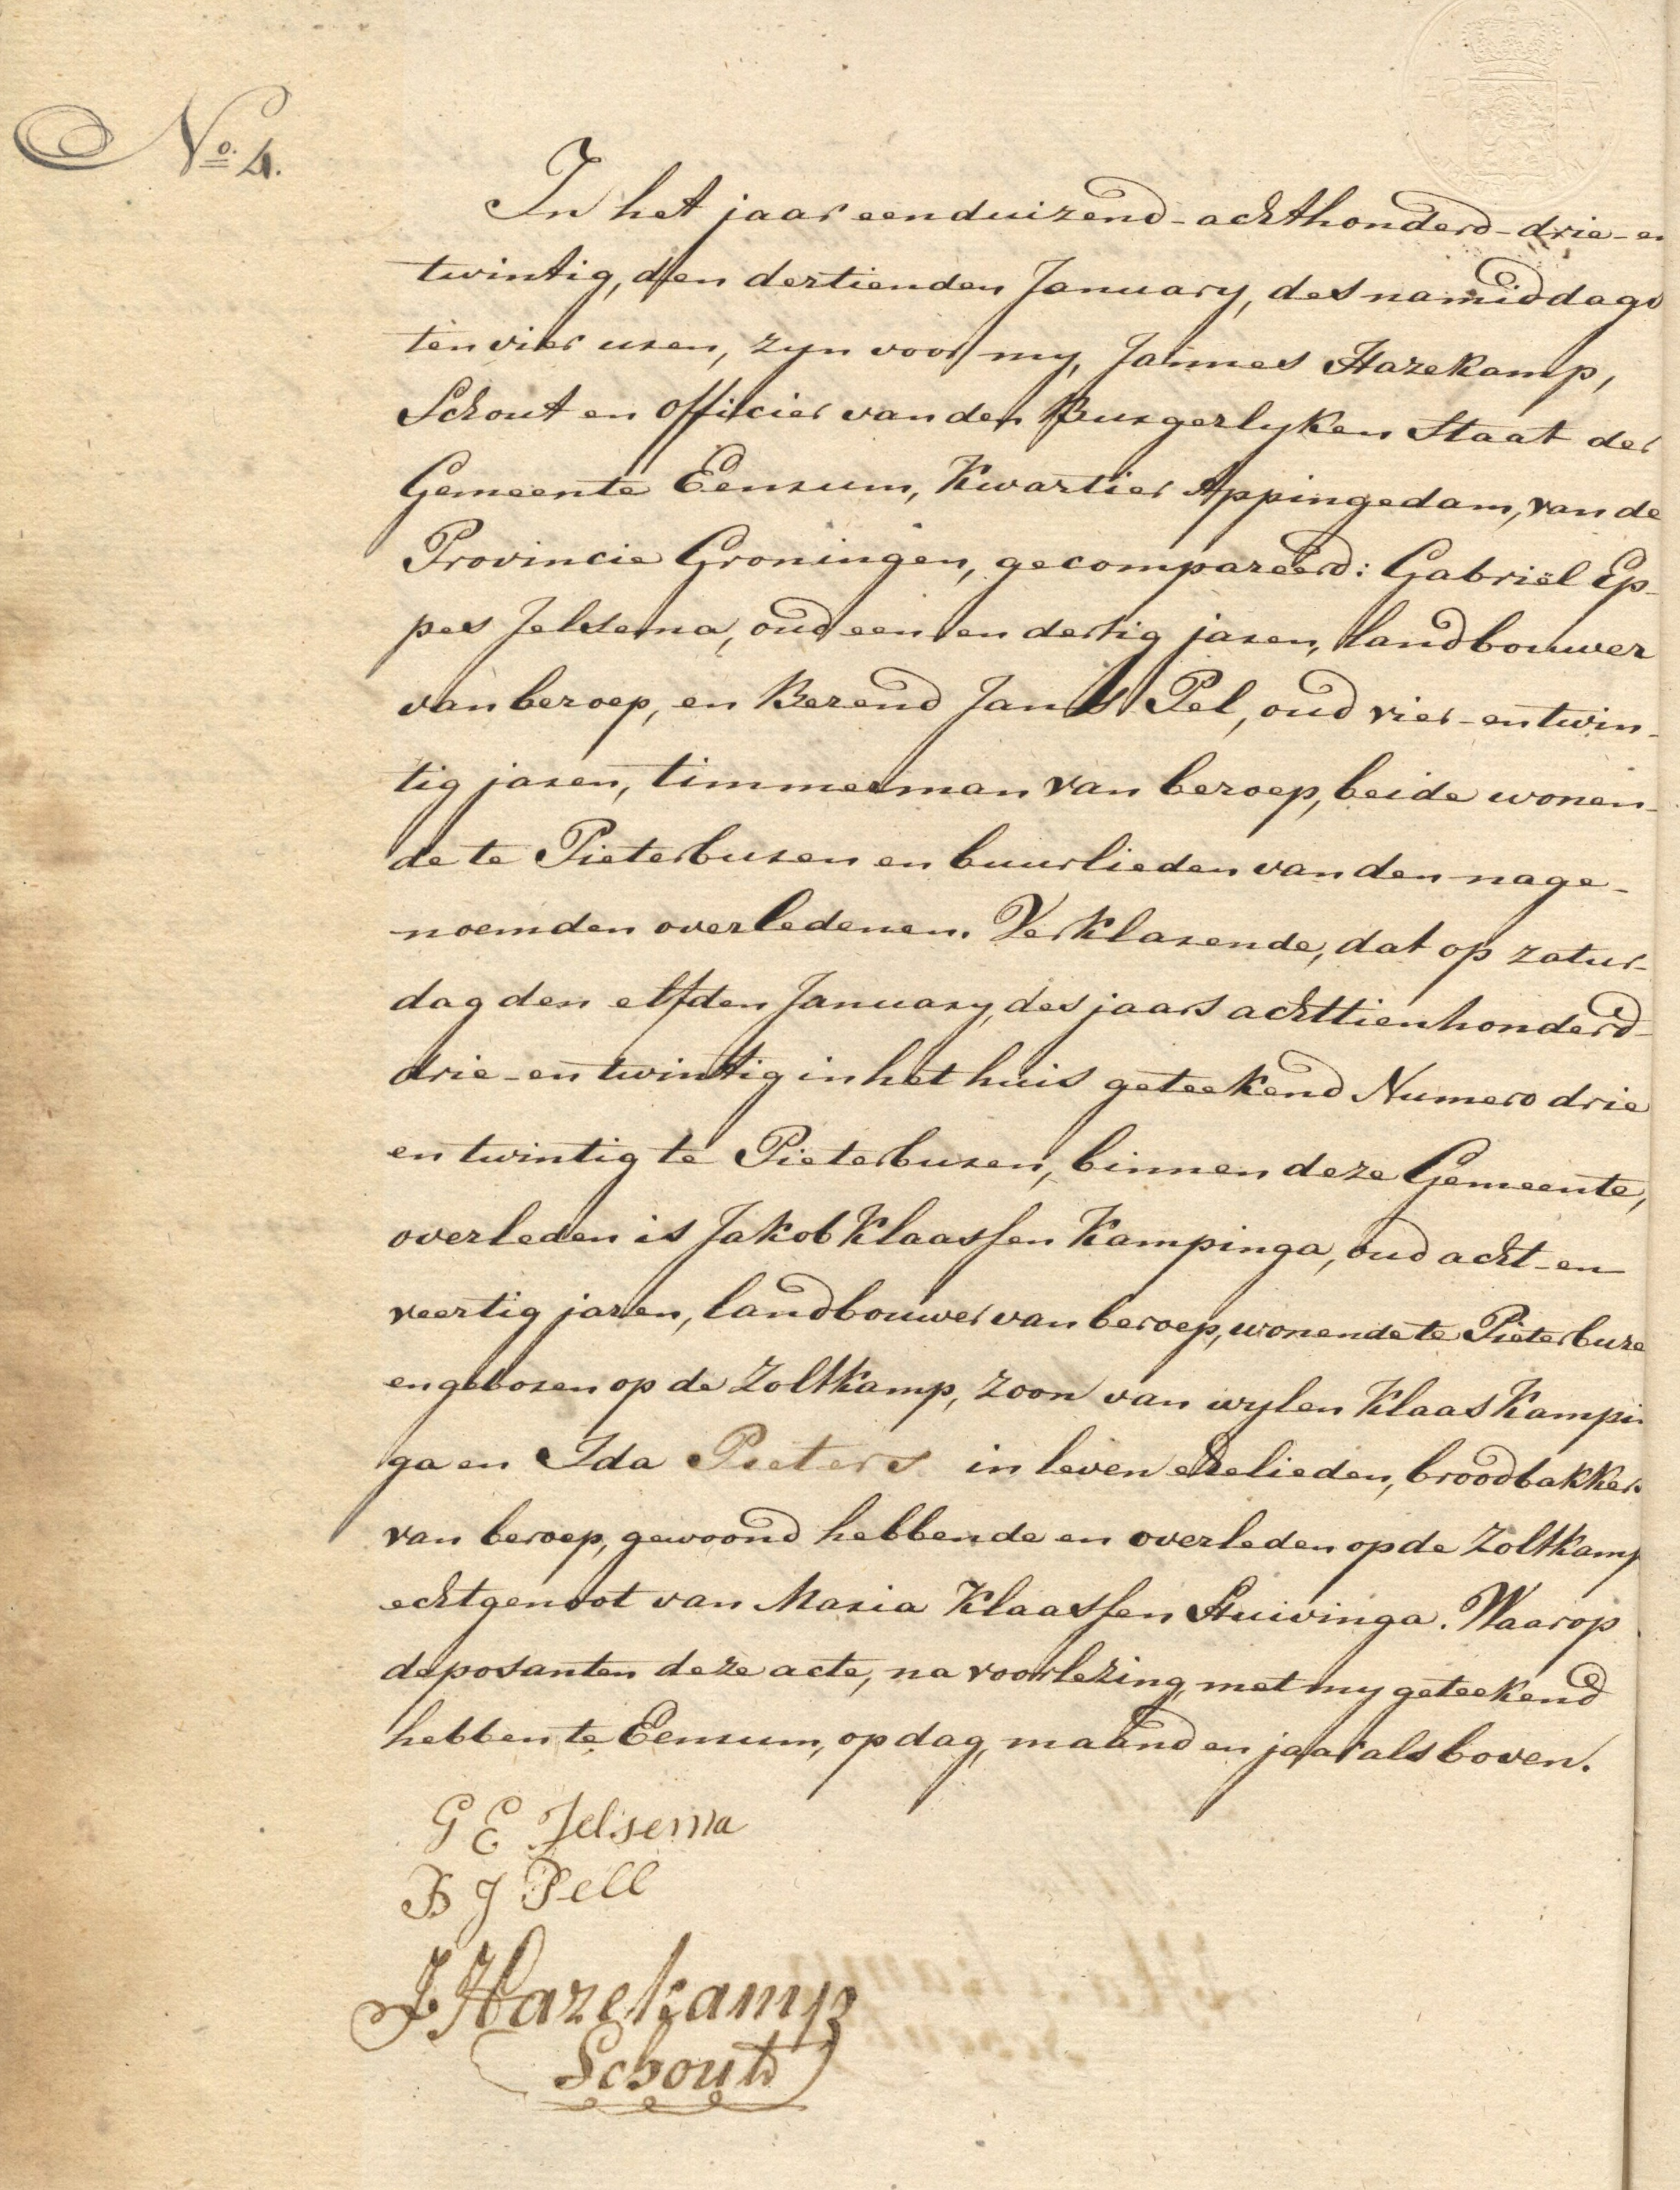 No. 4.
In het jaar eenduizend-achthonderd-drie-en
twintig, den dertienden January, des namiddags
ten vier uren, zyn voor my, Jannes Hazekamp,
Schout en officier van den Burgerlyken Staat der
Gemeente Eenrum, Kwartier Appingedam, van de
Provincie Groningen, gecompareerd: Gabriël Ep-
pes Jelsema, oud een en dertig jaren, landbouwer
van beroep, en Berend Jans Pel, oud vier-en twin-
tig jaren, timmerman van beroep, beide wonen-
de te Pieterburen en buurlieden van den nage-
noemden overledenen. Verklarende, dat op zatur-
dag den elfden January, des jaars achttienhonderd-
drie-en twintig in het huis geteekend Numero drie
en twintig te Pieterburen, binnen deze Gemeente,
overleden is Jakob Klaassen Kampinga, oud acht-en
veertig jaren, landbouwer van beroep, wonende te Pieterbure
en geboren op de Zoltkamp, zoon van wylen Klaas Kampin
ga en Ida Pieters in leven echelieden, broodbakkers
van beroep, gewoond hebbende en overleden op de Zoltkamp
echtgenoot van Maria Klaassen Huivinga. Waarop
deposanten deze acte, na voorlezing, met my geteekend
hebben te Eenrum, op dag, maand en jaar als boven.
G E Jelsema
B J Pell
J Hazekamp
Schout